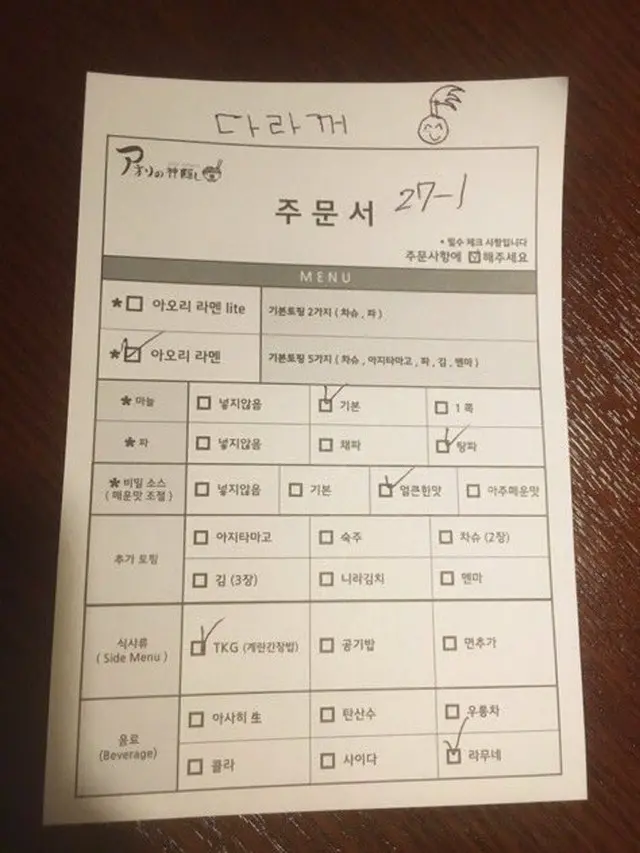 다라꺼
アオリの神隠し
주문서 27-1
* 필수 체크 사항입니다
주문사항에 ☑해주세요
MENU
* 아오리 라멘 lite 기본토핑 2가지 ( 차슈 , 파 )
* 아오리 라멘 기본토핑 5가지 ( 차슈 , 아지타마고 , 파 , 김 , 멘마 )
* 마늘 넣지않음 기본 1 쪽
* 파 넣지않음 채파 탕파
* 비밀 소스 넣지않음 기본 얼큰한맛 아주매운맛
( 매운맛 조절 )
추가 토핑 아지타마고 숙주 차슈 (2장)
김 (3장) 니라김치 멘마
식사류 TKG (계란간장밥) 공기밥 면추가
( Side Menu )
음료 아사히 生 탄산수 우롱차
(Beverage) 콜라 사이다 라무네